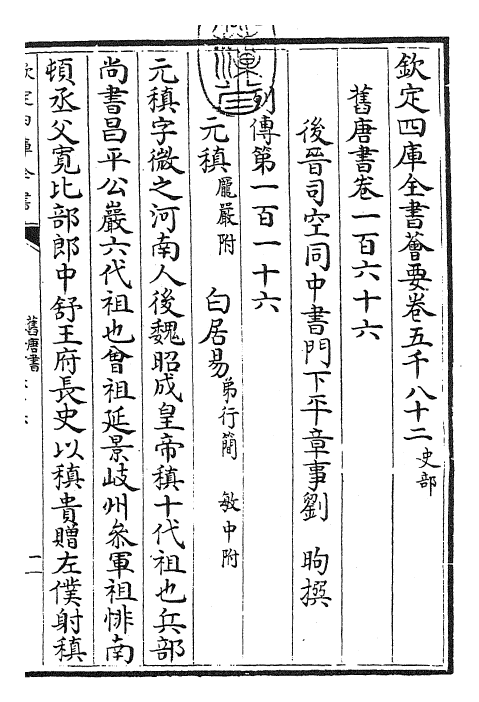 欽定四庫全書薈要卷五千八十二 史部
舊唐書卷一百六十六
後晉司空同中書門下平章事劉 昫撰
列傳第一百一十六
元稹 龐嚴附 白居易 弟行簡 敏中附
元稹字微之河南人後魏昭成皇帝稹十代祖也兵部
尚書昌平公巖六代祖也曾祖延景岐州叅軍祖悱南
頓丞父寛比部郎中舒王府長史以稹貴贈左僕射稹
欽定四庫全書
舊唐書